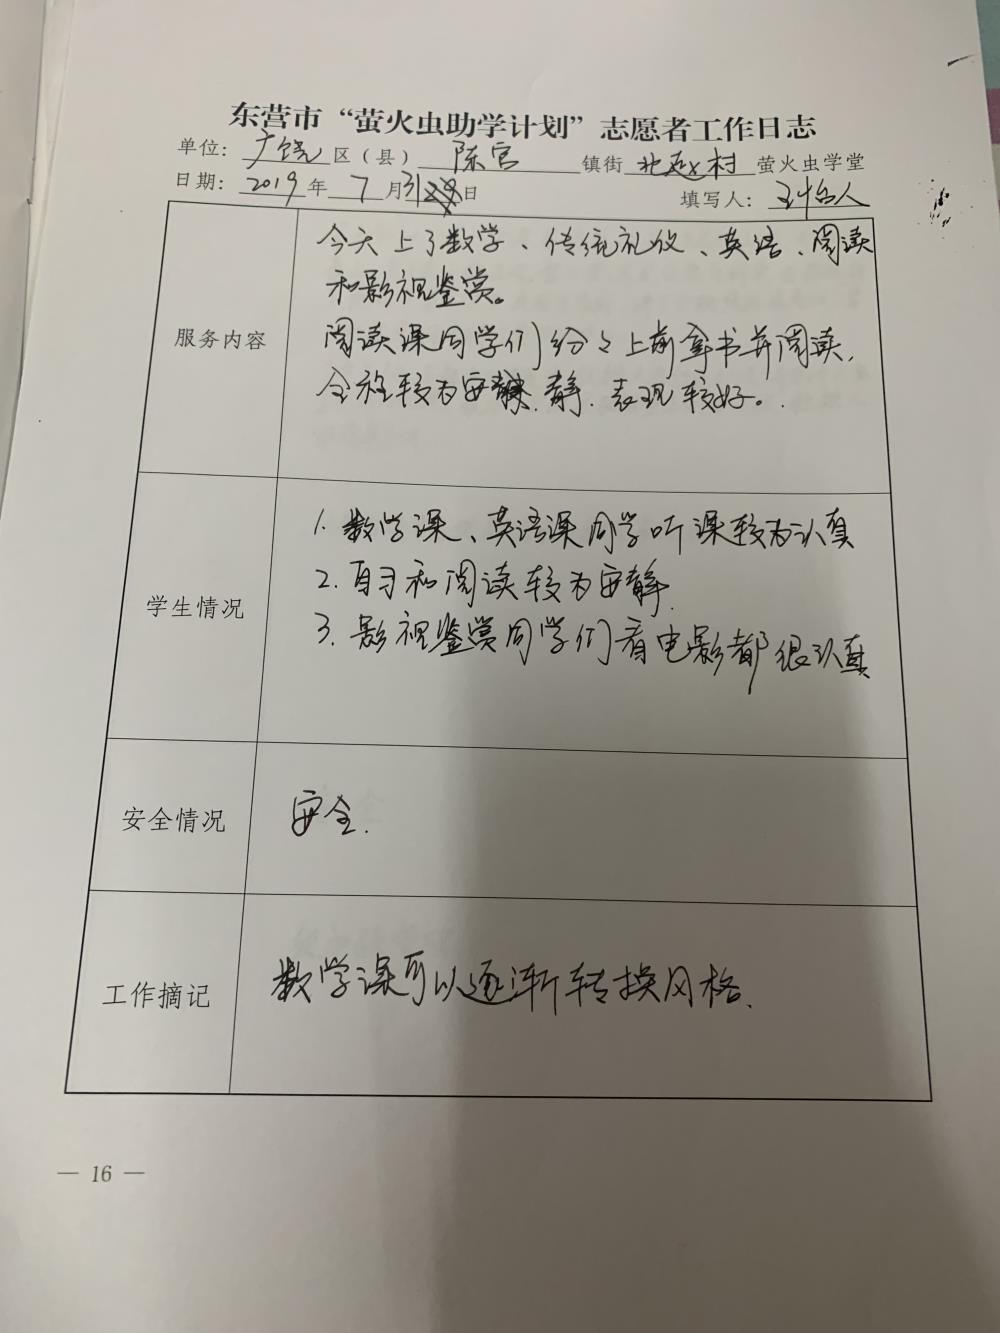 东营市“萤火虫助学计划”志愿者工作日志
单位：广饶区（县）陈官镇街北赵村萤火虫学堂
日期：2019年7月31日 填写人：
服务内容
今天上了数学、传统礼仪、英语、阅读
和影视鉴赏。
阅读课同学们纷々上前拿书并阅读，
全程较为安静．表现较好。
学生情况
1. 数学课、英语课同学听课较为认真
2. 自习和阅读较为安静．
3. 影视鉴赏同学们看电影都很认真
安全情况
安全．
工作摘记
数学课可以逐渐转换风格．
— 16 —